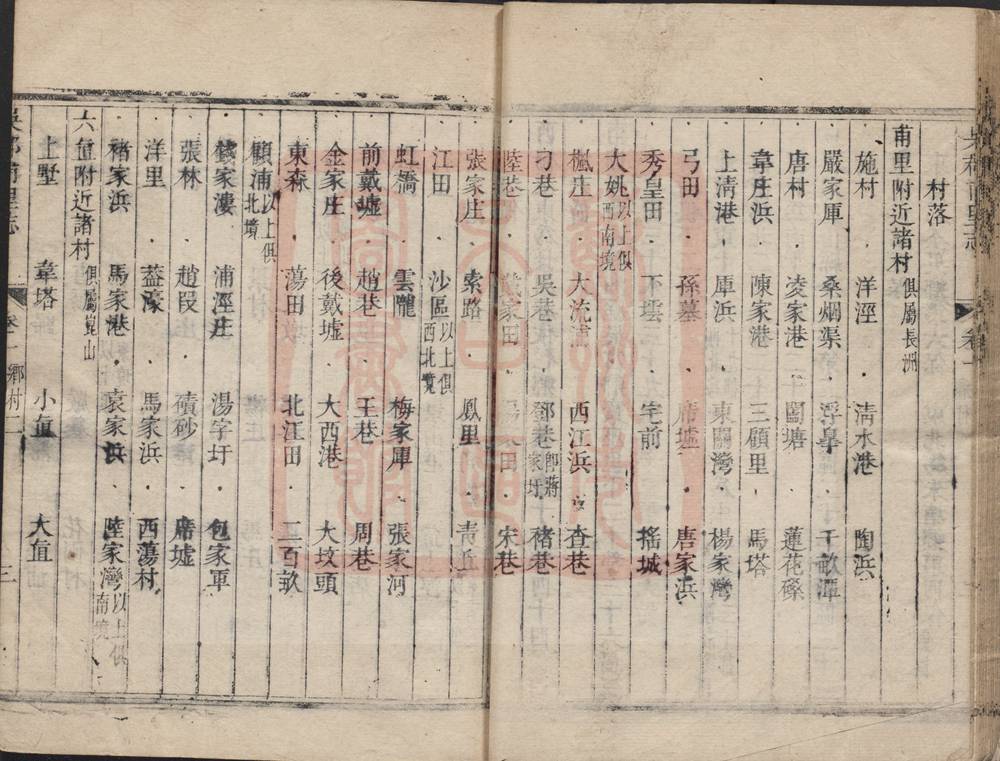 村落
甫里附近諸村俱屬長洲
施村 洋涇 清水港 陶浜
嚴家厙 桑烟渠 浮皋 千畝潭
唐村 凌家港 闊塘 蓮花磔
韋庄浜 陳家港 三顧里 馬塔
上清港 厙浜 東關灣 楊家灣
弓田 孫墓 席墟 唐家浜
秀皇田 不壜 宅前 搖城
大姚以上俱西南境
楓庄 大流 西江浜 杳巷
刁巷 吳巷 鄧巷即蔣家圩 褚巷
陸巷 家田 田 宋巷
張家庄 索路 鳳里 青丘
江田 沙區以上俱西北境
虹橋 雲隴 梅家厙 張家河
前戴墟 趙巷 王巷 周巷
金家庄 後戴墟 大西港 大坟頭
東森 蕩田 北江田 二百畝
顧浦以上俱北境
錢家漊 浦涇庄 湯字圩 包家軍
張林 趙段 磧砂 席墟
洋里 盖濠 馬家浜 西蕩村
褚家浜 馬家港 袁家浜 陸家灣以上俱南境
六直附近諸村俱屬崑山
上墅 韋塔 小直 大直
卷一 鄉村 三